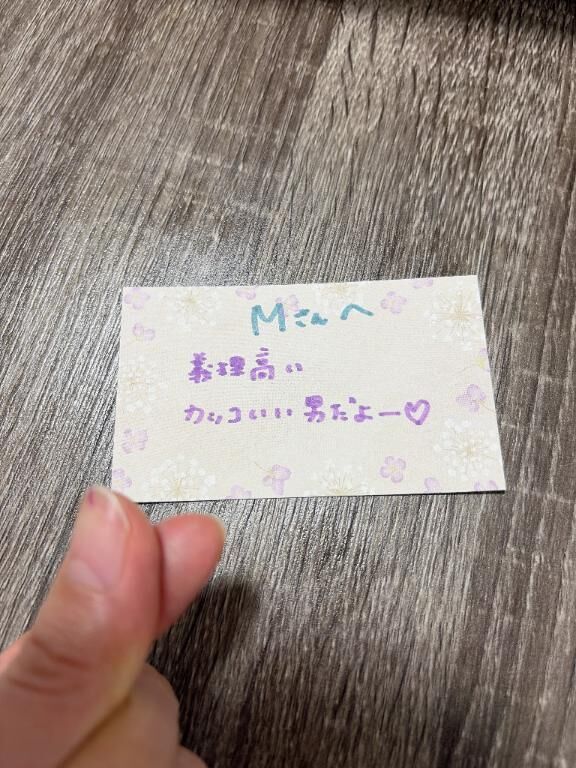 Mさんへ
義理高い
カッコいい男だよー♡